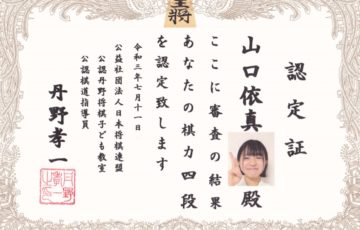 王將
認定証
山口依真殿
ここに審査の結果
あなたの棋力四段
を認定致します
令和三年七月十一日
公益社団法人日本将棋連盟
公認丹野将棋子ども教室
公認棋道指導員
丹野孝一